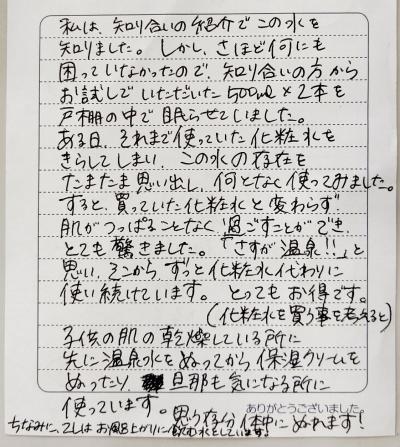 私は、知り合いの紹介でこの水を
知りました。しかし、さほど何にも
困っていなかったので、知り合いの方から
お試しでいただいた500ml×2本を
戸棚の中で眠らせてしまいました。
ある日、それまで使っていた化粧水を
きらしてしまい、この水の存在を
たまたま思い出し、何となく使ってみました。
すると、買っていた化粧水と変わらず
肌がつっぱることなく過ごすことができ
とても驚きました。「さすが温泉!!」と
思い、そこからずっと化粧水代わりに
使い続けています。とってもお得です。
(化粧水を買う事を考えると)
子供の肌の乾燥している所に
先に温泉水をぬってから保湿クリームを
ぬったり、旦那も気になる所に
使っています。思う存分体中にぬれます!
ありがとうございました。
ちなみに、コレはお風呂上がりに飲む水としています。